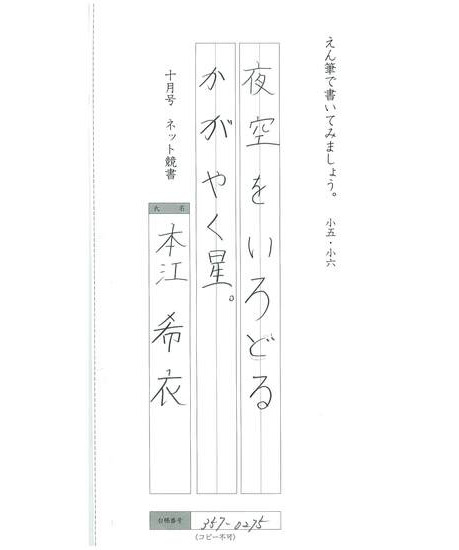 えん筆で書いてみましょう。 小五・小六
夜空をいろどる
かがやく星。
十月号 ネット競書
氏名
本江希衣
台帳番号
357-0275
(コピー不可)